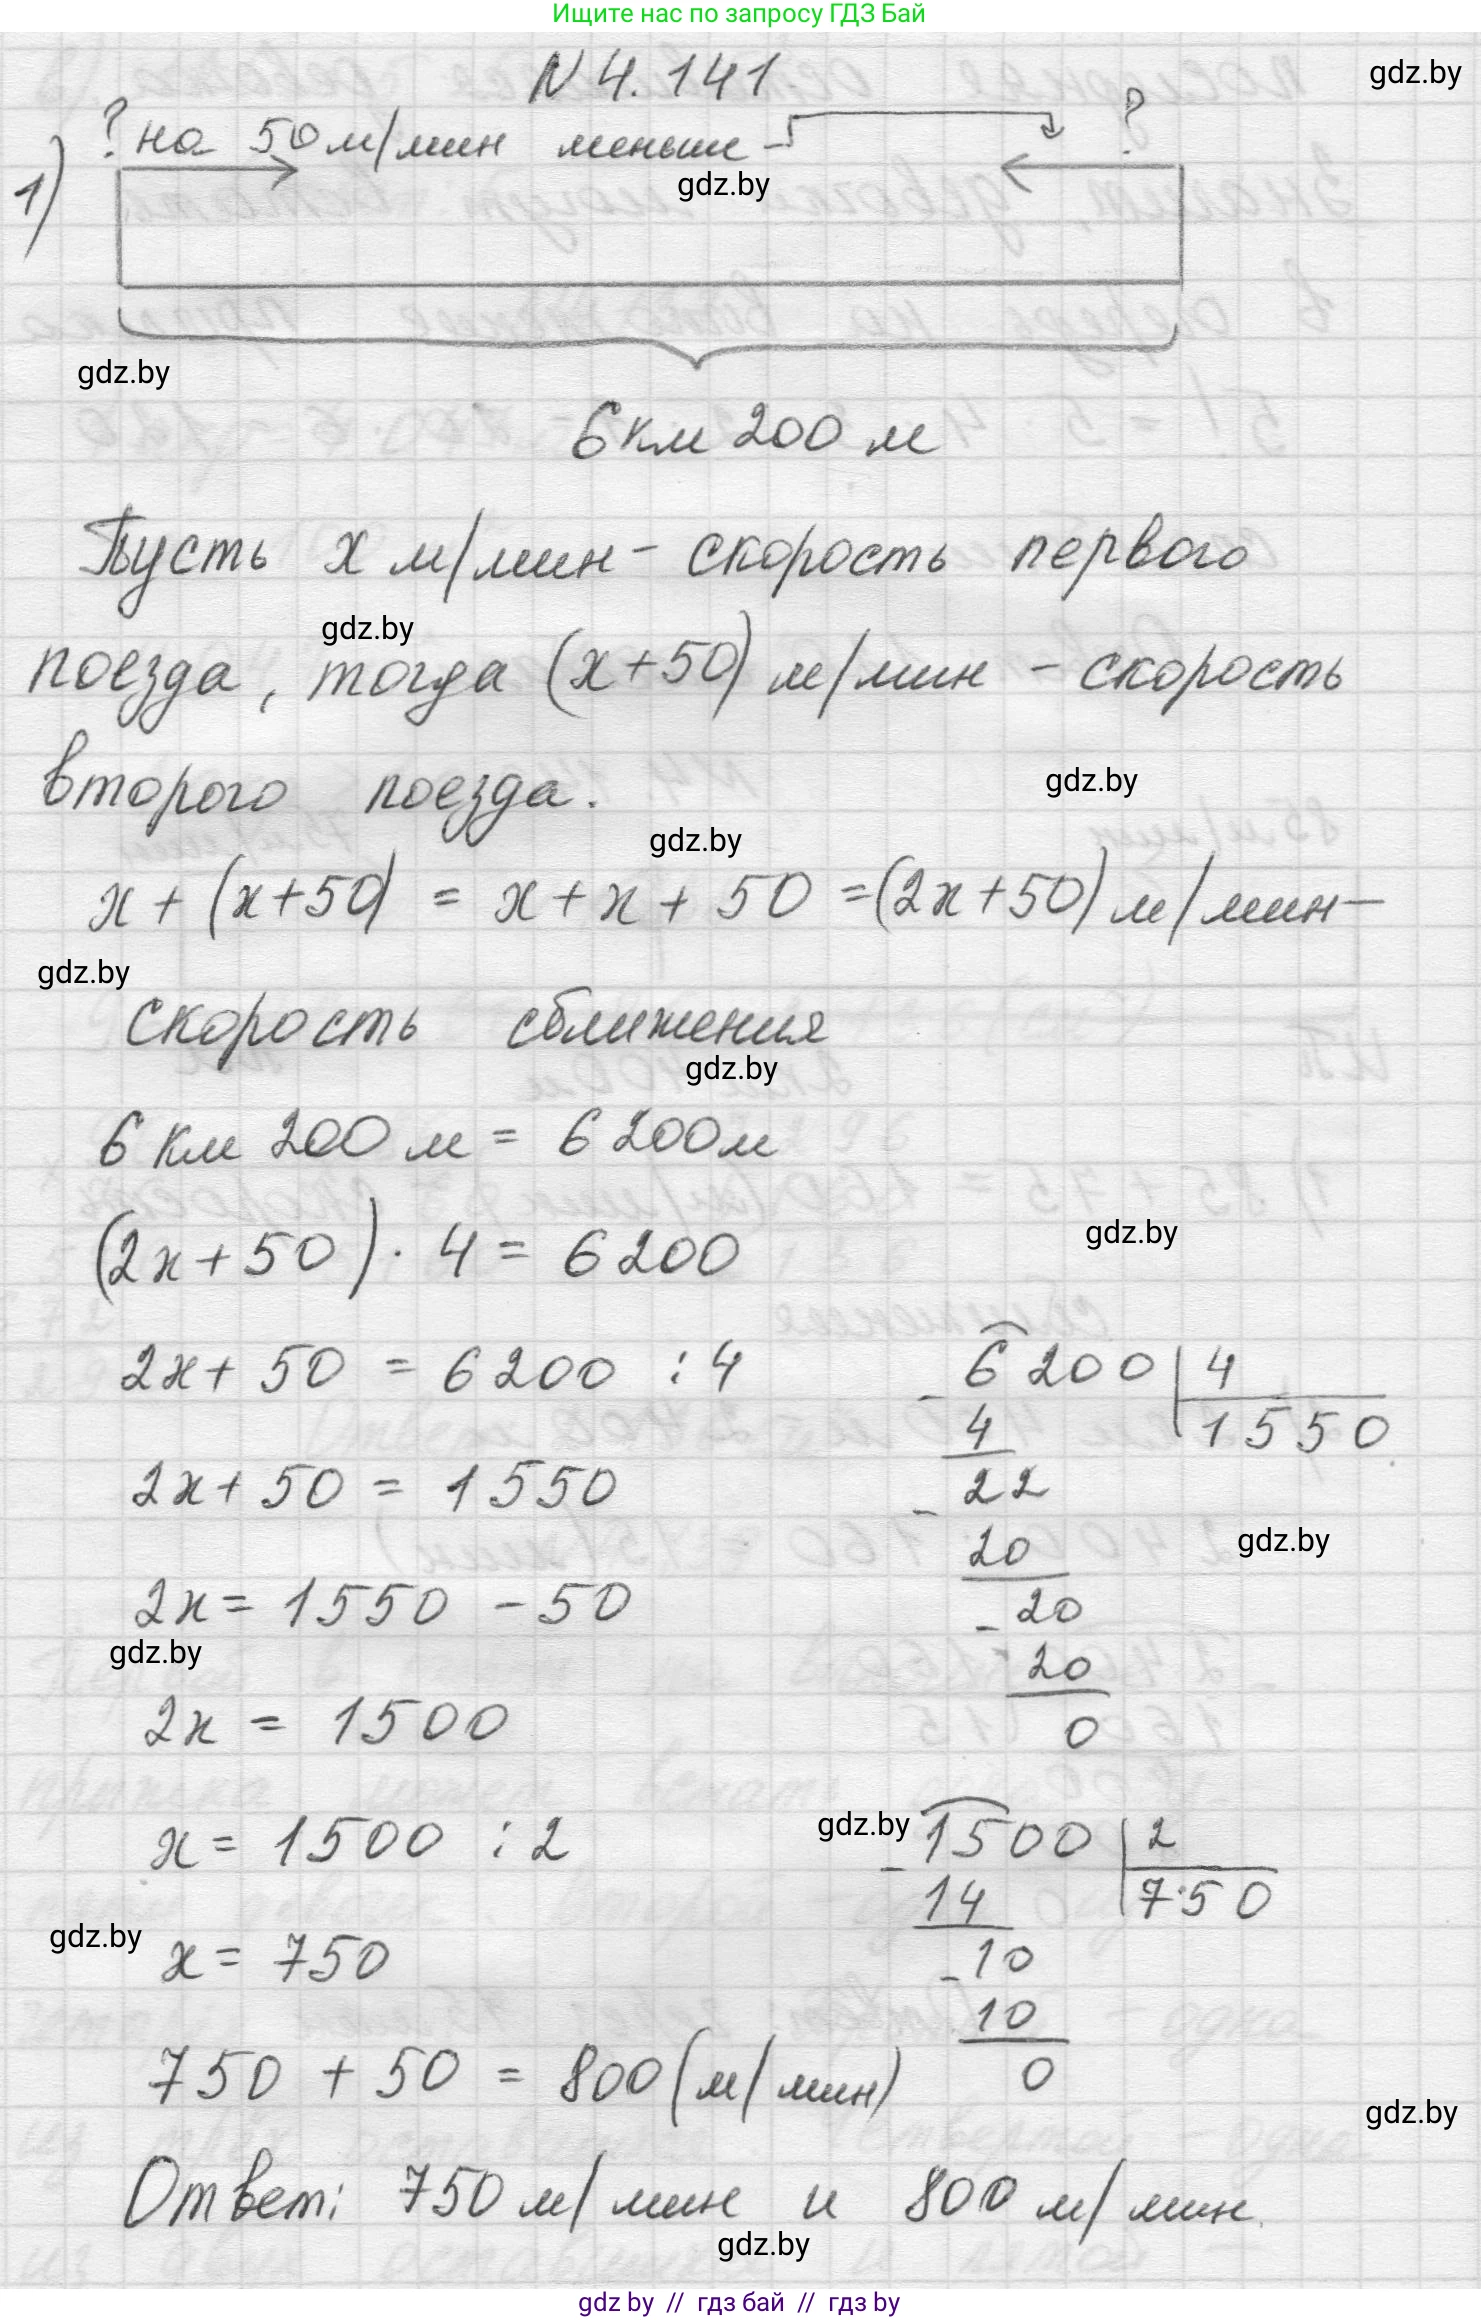 Ищите нас по запросу ГДЗ Бай
N 4.141
gdz.by
? на 50 м/мин меньше ?
gdz.by
1)
gdz.by
6 км 200 м
Пусть x м/мин - скорость первого
gdz.by
поезда, тогда (x+50) м/мин - скорость
второго поезда.
gdz.by
gdz.by
x + (x+50) = x + x + 50 = (2x+50) м/мин -
gdz.by
скорость сближения
gdz.by
6 км 200 м = 6 200 м
gdz.by
(2x+50) · 4 = 6 200
2x + 50 = 6 200 : 4
2x + 50 = 1550
2x = 1550 - 50
gdz.by
2x = 1500
x = 1500 : 2
gdz.by
x = 750
6 200 | 4
- 4 | 1550
- 22
20
gdz.by
- 20
20
0
gdz.by
- 1500 | 2
14 | 750
- 10
10
0
750 + 50 = 800 (м/мин)
gdz.by
Ответ: 750 м/мин и 800 м/мин.
gdz.by
gdz by // гдз бай // гдз by